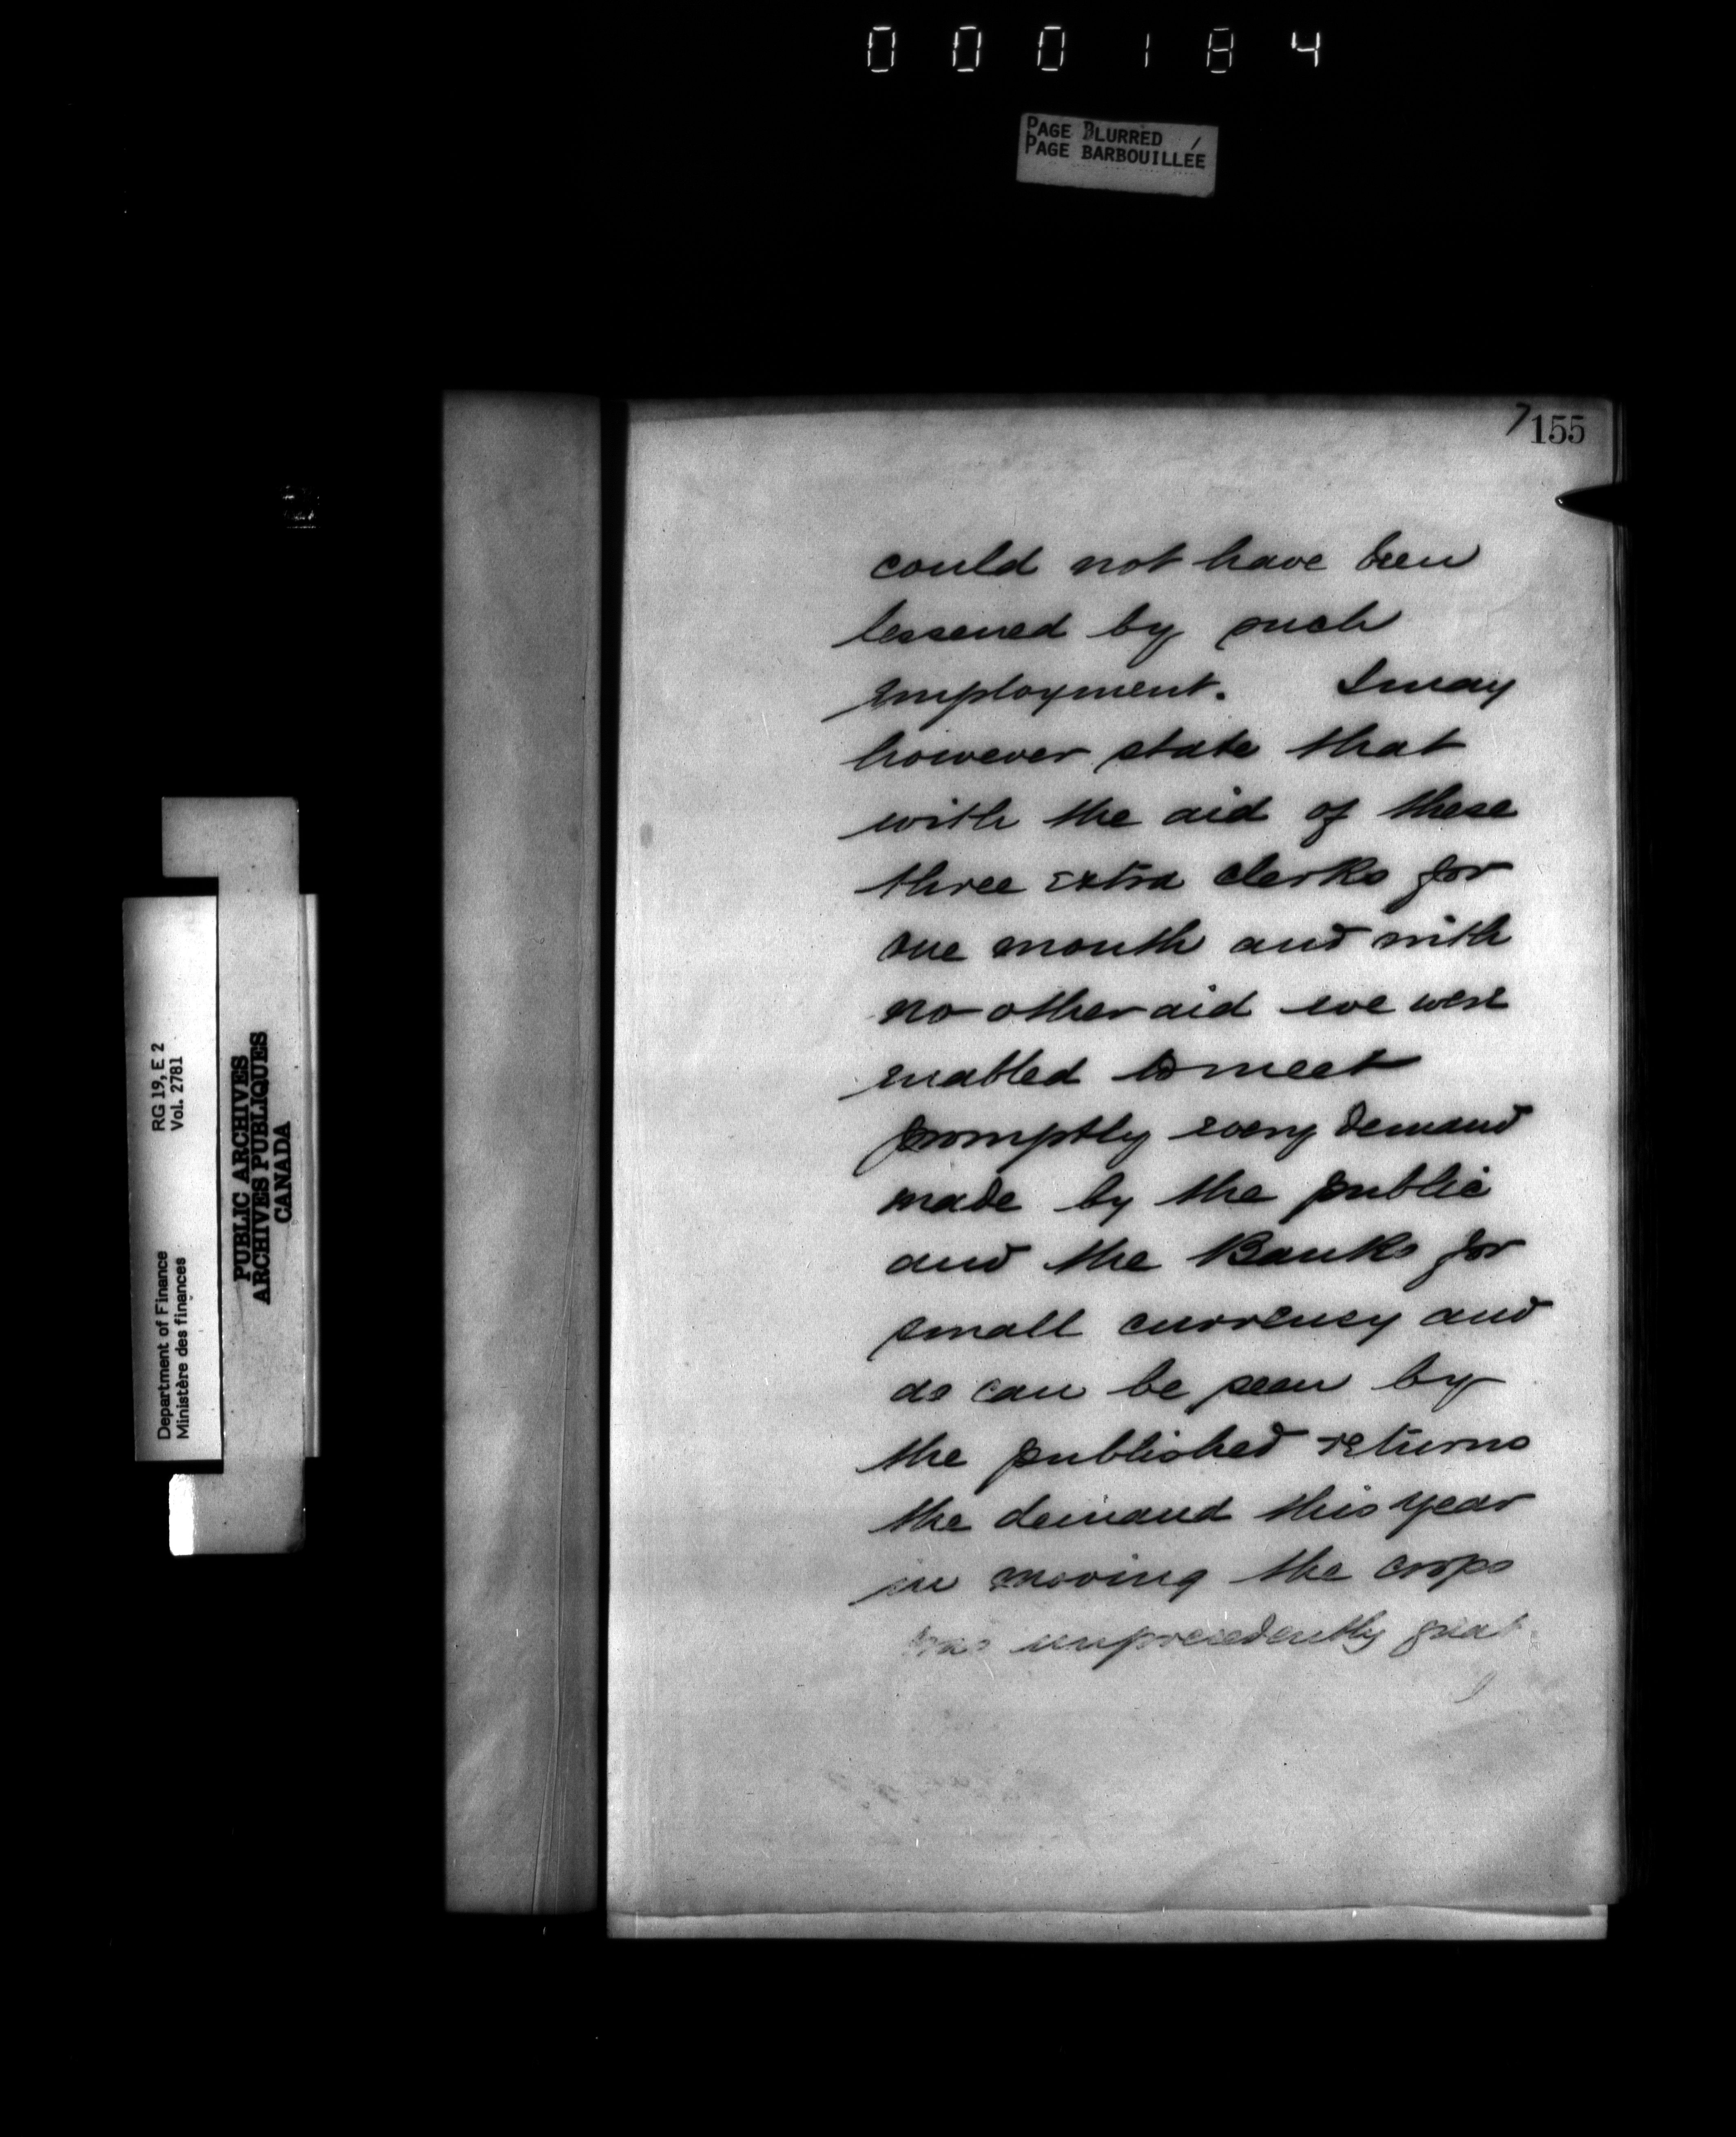 000184
PAGE BLURRED
PAGE BARBOUILLÉE
7 155
could not have been
lessened by such
employment. I may
however state that
with the aid of these
three extra clerks for
one month and with
no other aid we were
enabled to meet
promptly every demand
made by the public
and the Banks for
small currency and
as can be seen by
the published returns
the demand this year
in moving the crops
was unprecedently great.
RG 19, E 2
Vol. 2781
Department of Finance
Ministère des finances
PUBLIC ARCHIVES
ARCHIVES PUBLIQUES
CANADA